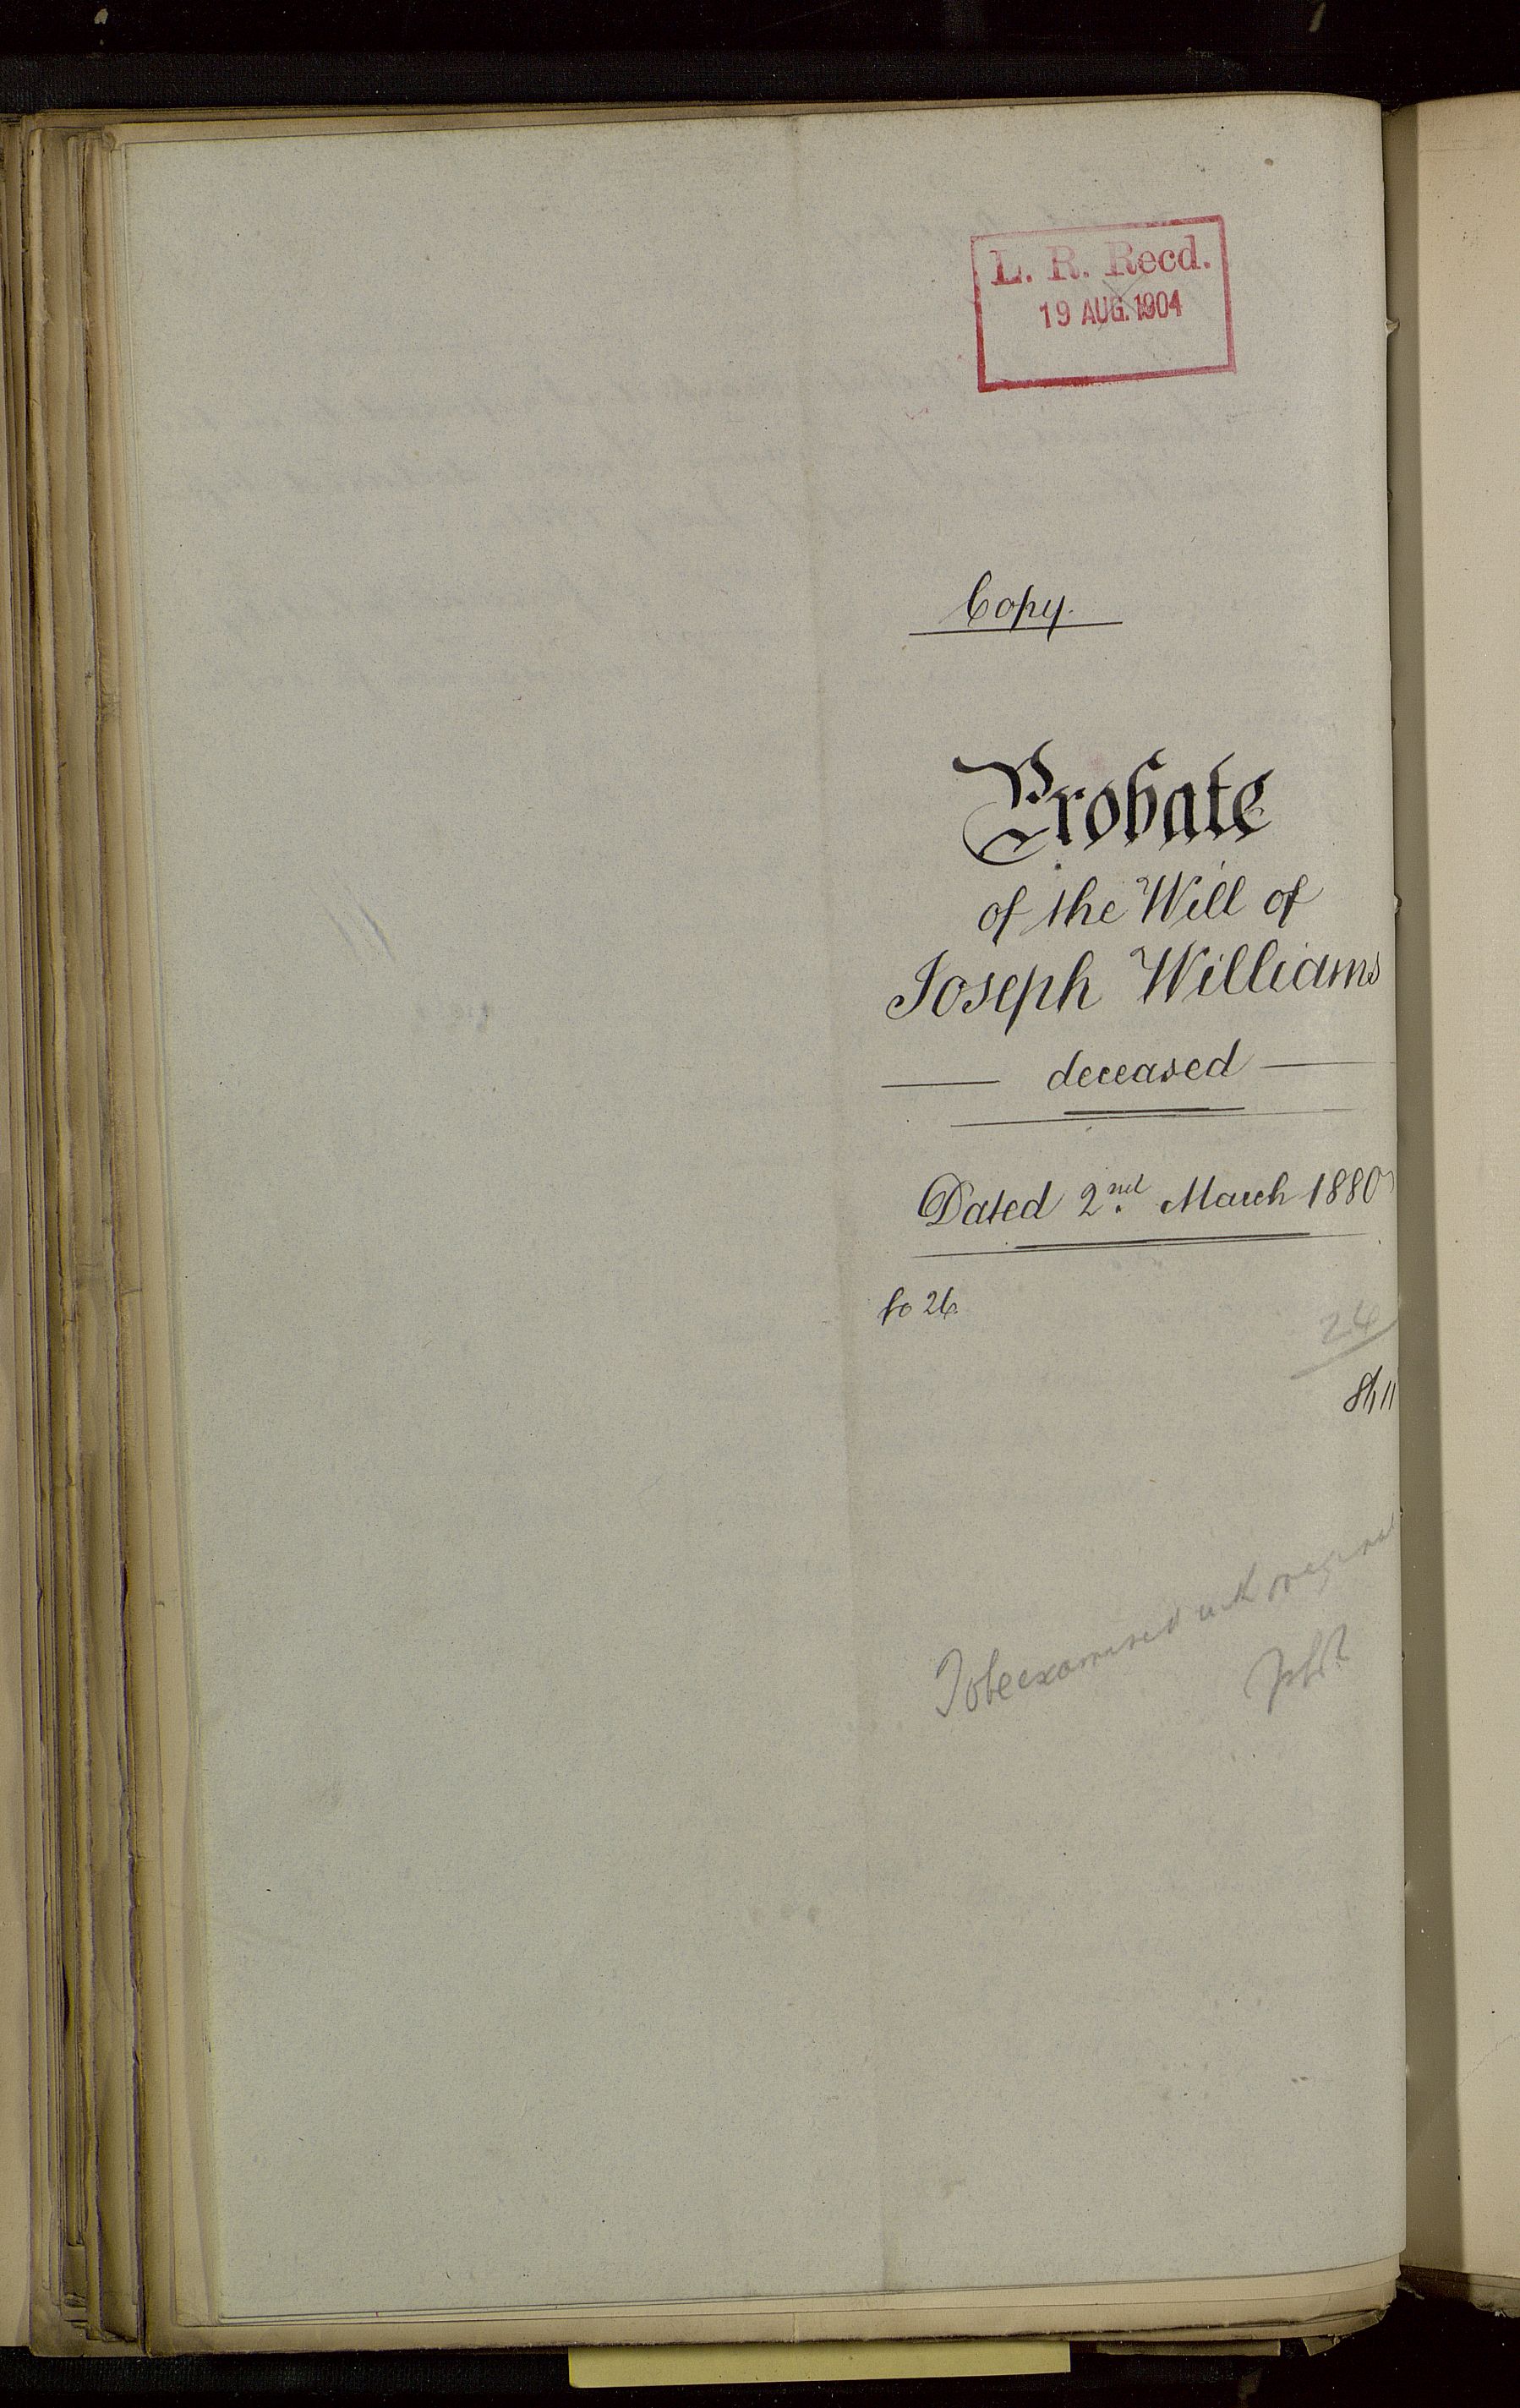 L. R. Recd.
19 AUG. 1904
Copy.
Probate
of the Will of
Joseph Williams
deceased
Dated 2nd March 1880
fo 26
24
To be examined with original